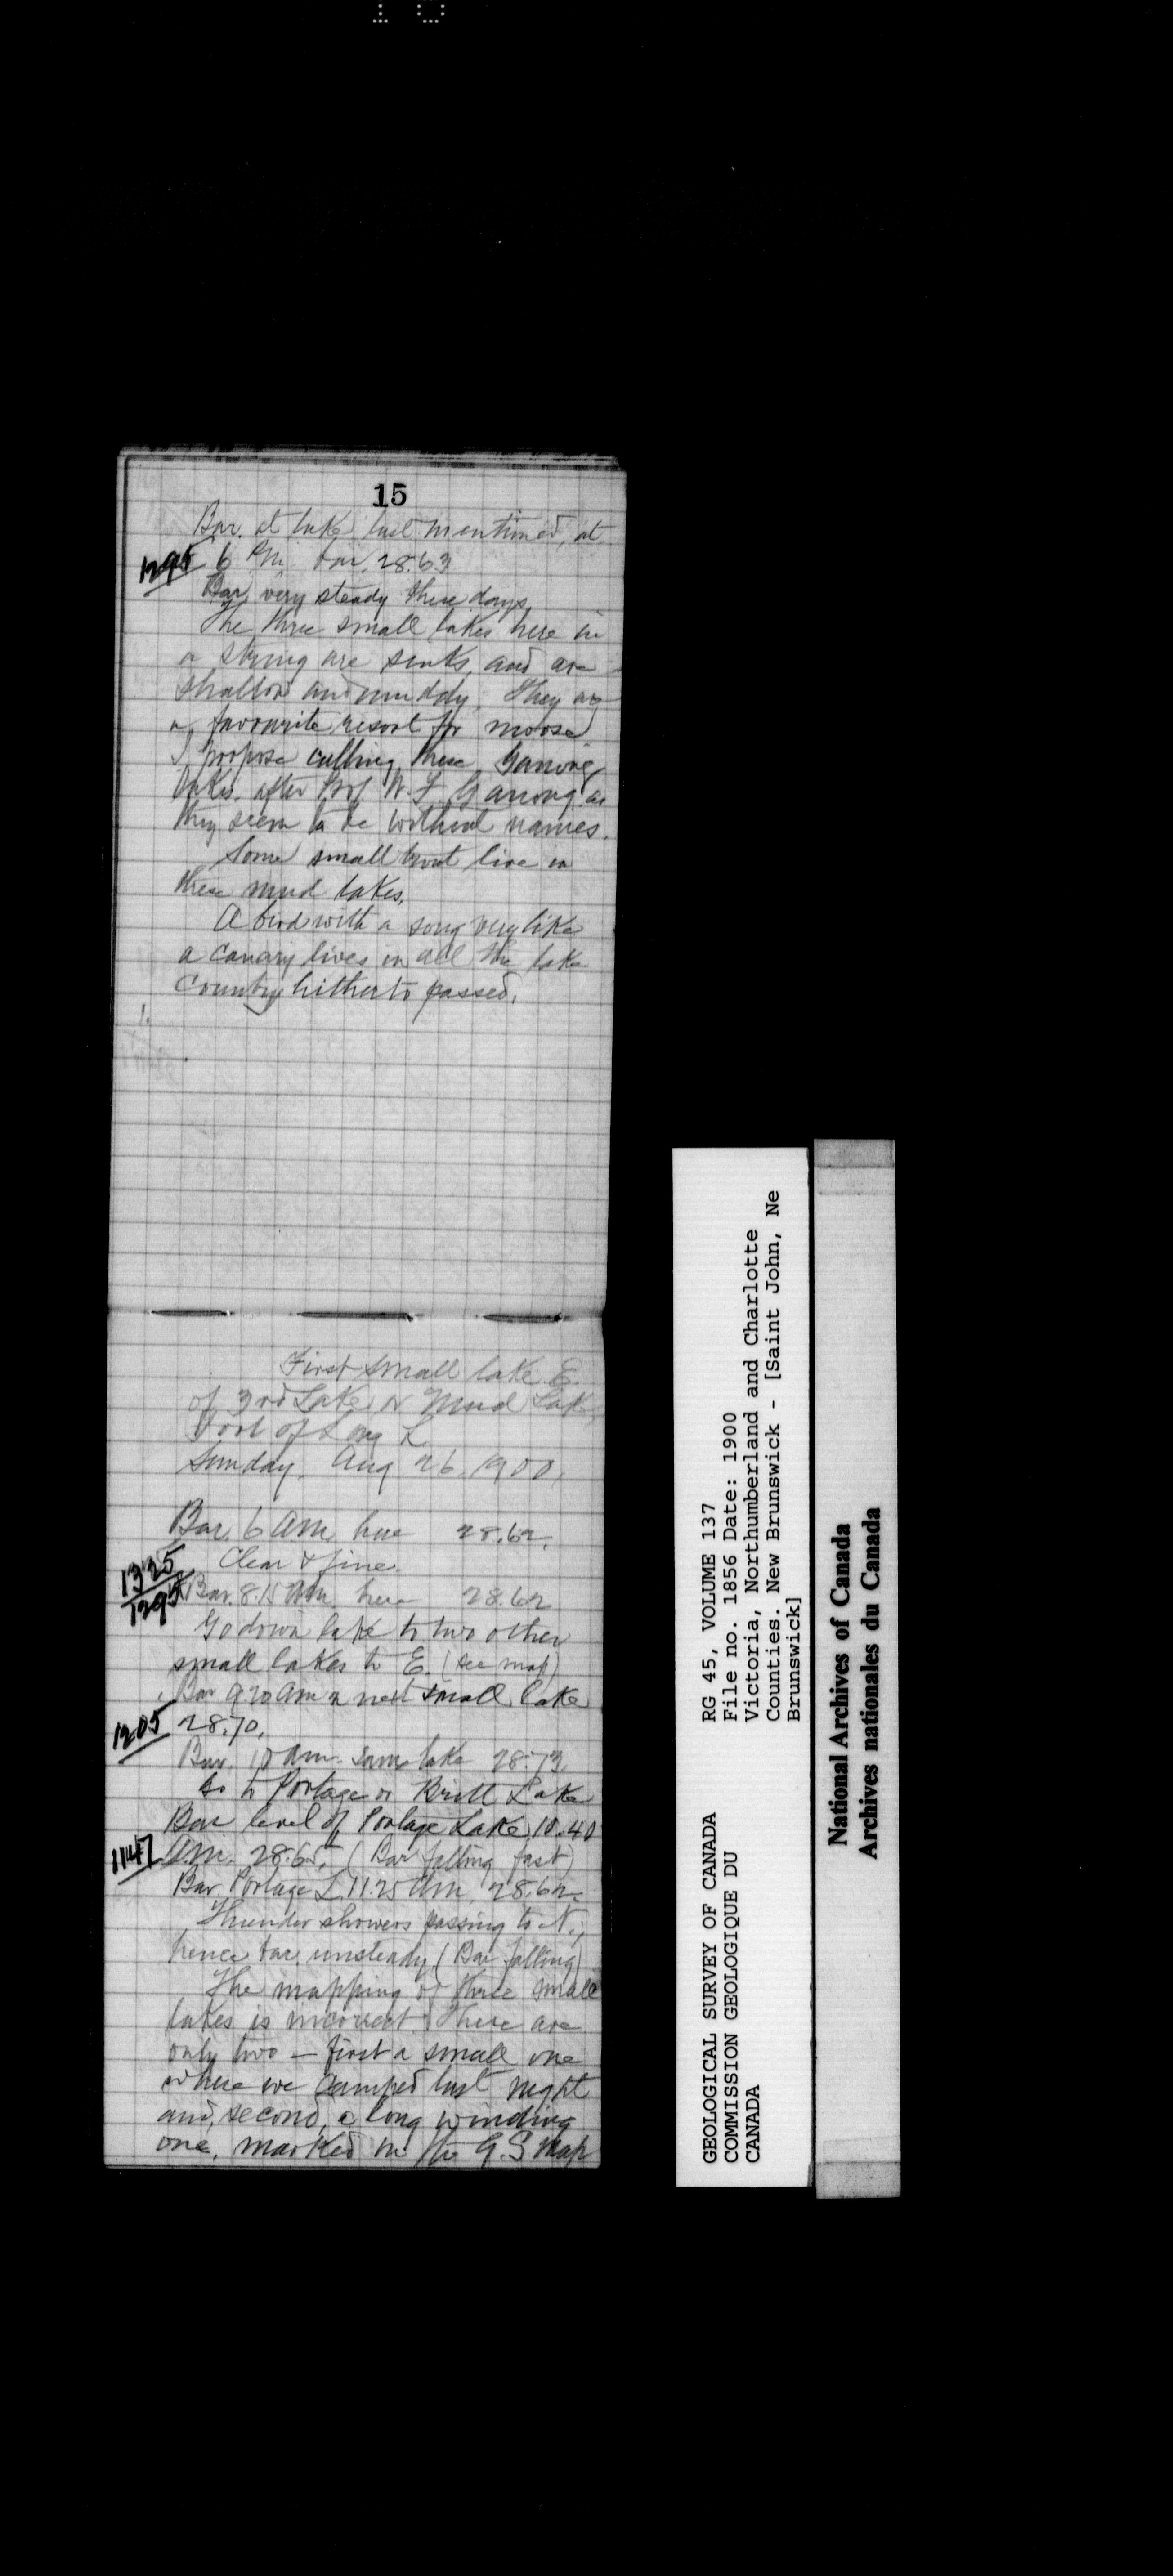 15
Bar. at lake last mentioned, at
1295 6 P.M. bar. 28.63
Bar. very steady these days.
The three small lakes here in
a string are sinks, and are
shallow and muddy. They are
a favourite resort for moose
I propose calling these Ganong
Lakes, after Prof W. F. Ganong as
they seem to be without names.
Some small trout live in
these mud lakes.
A bird with a song very like
a canary lives in all the lake
country hitherto passed.
First small lake E.
of 3rd Lake or Mud Lake,
Foot of Long L
Sunday. Aug 26. 1900.
Bar. 6 A.M. here 28.62.
Clear & fine.
1325
1295 Bar. 8.15 A.M. here 28.62
Go down lake to two other
small lakes to E. (see map)
Bar 9 20 am n next small lake
1205 28.70.
Bar. 10 am. same lake 28.73.
Go to Portage or Britt Lake
Bar level of Portage Lake, 10.40
1147 A.M. 28.65. (Bar falling fast)
Bar. Portage L. 11.25 A.M. 28.62.
Thunder showers passing to N.;
hence bar. unsteady (Bar falling)
The mapping of three small
lakes is incorrect. There are
only two — first a small one
where we camped last night
and, second, a long winding
one, marked in the G.S map
RG 45, VOLUME 137
File no. 1856 Date: 1900
Victoria, Northumberland and Charlotte
Counties. New Brunswick - [Saint John, Ne
Brunswick]
GEOLOGICAL SURVEY OF CANADA
COMMISSION GEOLOGIQUE DU
CANADA
National Archives of Canada
Archives nationales du Canada